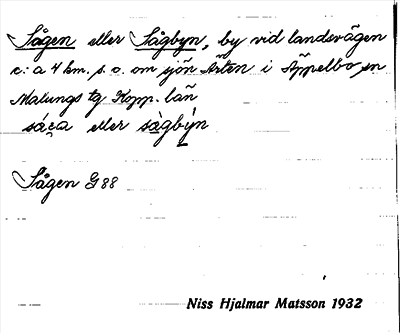 Sågen eller Sågbyn, by vid landsvägen
c:a 4 km. s.o. om sjön Ärten i Äppelbo sn
Malungs tg Kopp. län
eller
Sågen G 88
Niss Hjalmar Matsson 1932